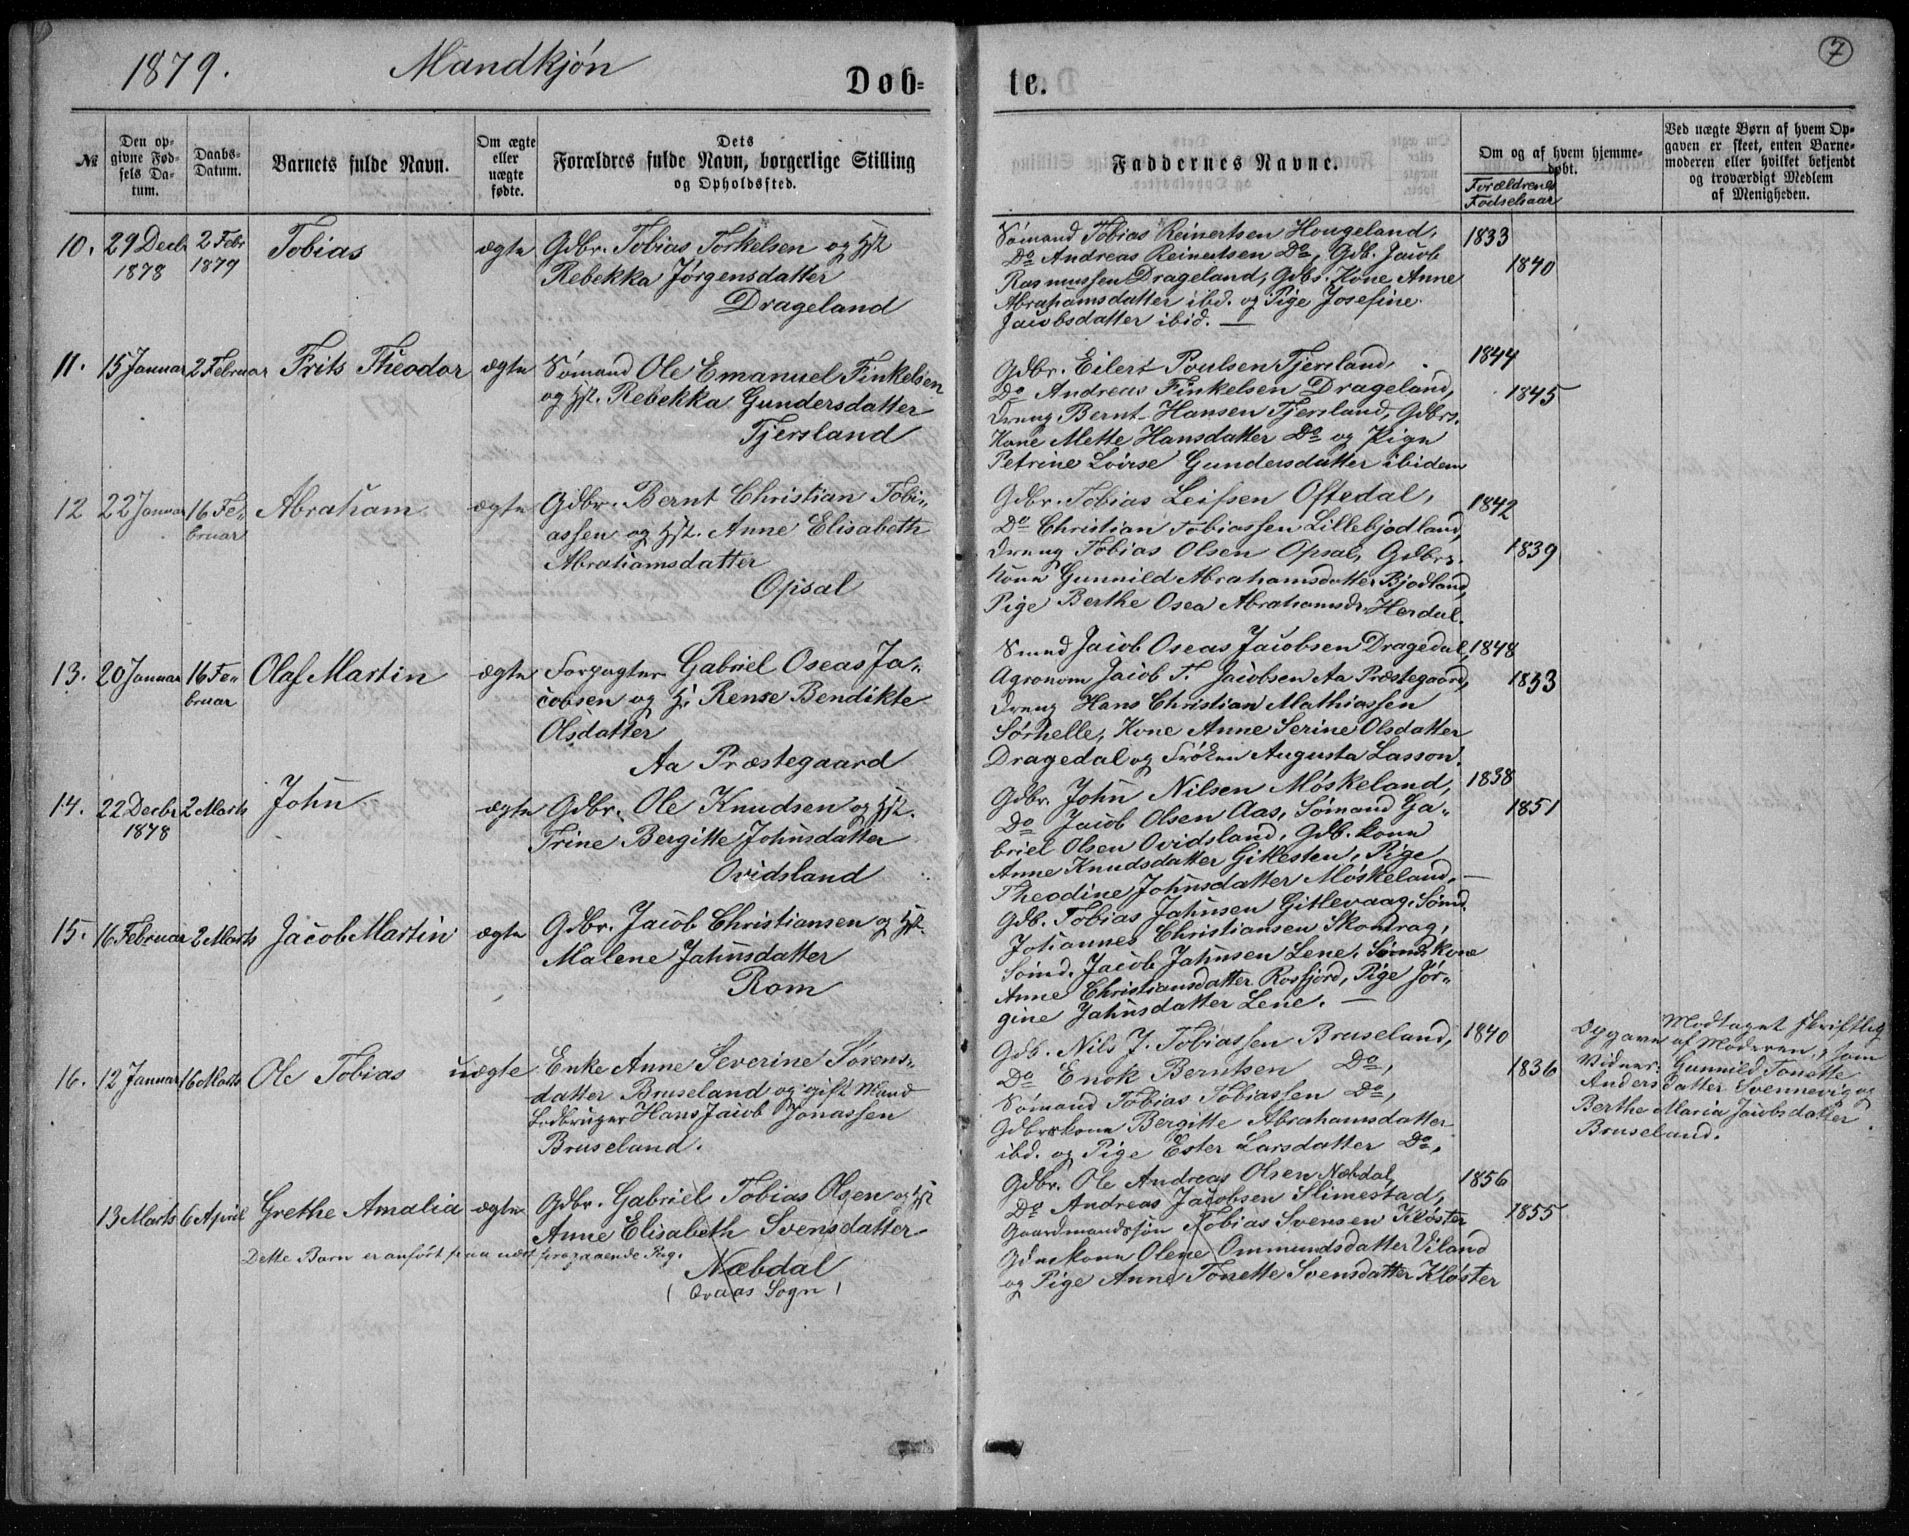 1879.
Mandkjøn
Døb-
te.
7
№
Den op-
givne Fød-
sels Da-
tum.
Daabs-
Datum.
Barnets fulde Navn.
Om ægte
eller
uægte
fødte.
Dets
Forældres fulde Navn, borgerlige Stilling
og Opholdssted.
Faddernes Navne.
Om og af hvem hjemme-
døbt.
Forældrenes
Fødselsaar
Ved uægte Børn af hvem Op-
gaven er skeet, enten Barne-
moderen eller hvilket bekjendt
og troværdigt Medlem
af Menigheden.
10. 29 Decbr 1878
2 Febr 1879
Tobias
ægte
Gdbr. Tobias Torkelsen og Hst
Rebekka Jørgensdatter
Drageland
Sømand Tobias Reinertsen Hougeland,
Do Andreas Reinertsen Do, Gdb. Jacob
Rasmussen Drageland, Gdbs. Kone Anne
Abrahamsdatter ibd. og Pige Josefine
Jacobsdatter ibid. —
1833
1840
11. 15 Januar
2 Februar
Frits Theodor
ægte
Sømand Ole Emanuel Finkelsen
og Hst. Rebekka Gundersdatter
Tjersland
Gdbr. Eilert Poulsen Tjersland,
Do Andreas Finkelsen Drageland,
Dreng Bernt Hansen Tjersland, Gdbrs.
Kone Mette Hansdatter Do og Pige
Petrine Lovise Gundersdatter ibidem
1844
1845
12 22 Januar
16 Fe-
bruar
Abraham
ægte
Gdbr. Bernt Christian Tobi-
assen og Hst. Anne Elisabeth
Abrahamsdatter
Opsal
Gdbr. Tobias Leifsen Oftedal,
Do Christian Tobiassen Lillebjodland,
Dreng Tobias Olsen Opsal, Gdbrs.
Kone Gunnild Abrahamsdatter Bjodland,
Pige Berthe Osea Abrahamsdr. Herdal.
1842
1839
13. 20 Januar
16 Fe-
bruar
Olaf Martin
ægte
Forpagter Gabriel Oseas Ja-
cobsen og H. Rense Bendikte
Olsdatter
Aa Præstegaard
Smed Jacob Oseas Jacobsen Dragedal,
Agronom Jacob T. Jacobsen Aa Præstegaard,
Dreng Hans Christian Mathiassen
Sørhelle, Kone Anne Serine Olsdatter
Dragedal og Frøken Augusta Lasson.
1848
1853
14. 22 Decbr 1878
2 Marts
John
ægte
Gdbr. Ole Knudsen og Hst.
Trine Bergitte Johnsdatter
Ovidsland
Gdbr. John Nilsen Møskeland,
Do Jacob Olsen Aas, Sømand Ga-
briel Olsen Ovidsland, Gdb. kone
Anne Knudsdatter Gitlesten, Pige
Theodine Johnsdatter Møskeland. —
1838
1851
15. 16 Februar
2 Marts
Jacob Martin
ægte
Gdbr. Jacob Christiansen og Hst.
Malene Jahnsdatter
Rom
Gdb. Tobias Jahnsen Gitlevaag, Sømd.
Johannes Christiansen Skomrag,
Sømd. Jacob Jahnsen Lene, Sømds kone
Anne Christiansdatter Rosfjord, Pige Jør-
gine Jahnsdatter Lene. —
16. 12 Januar
16 Marts
Ole Tobias
uægte
Enke Anne Severine Sørens-
datter Bruseland og gift Mand
Ledbruger Hans Jacob Jonassen
Bruseland.
Gdb. Nils J. Tobiassen Bruseland,
Do Enok Berntsen Do,
Sømand Tobias Tobiassen Do,
Gdbrskone Bergitte Abrahamsdatter
ibd. og Pige Ester Larsdatter Do.
1840
1836
Modtaget skriftlig
Opgave af Moderen, som
Vidner: Gunnild Tonette
Andersdatter Svennevig og
Berthe Maria Jacobsdatter
Bruseland.
13 Marts
6 April
Grethe Amalia
ægte
Gdbr. Gabriel Tobias Olsen og Hst
Anne Elisabeth Svensdatter
Næbdal
(Qvaas Sogn)
Dette Barn er anført paa næst foregaaende Pag.
Gdbr. Ole Andreas Olsen Næbdal,
Do Andreas Jacobsen Slimestad,
Gaardmandssøn Tobias Svensen Kloster
Gdm kone Olene Ommundsdatter Viland
og Pige Anne Tonette Svensdatter Kloster
1856
1855